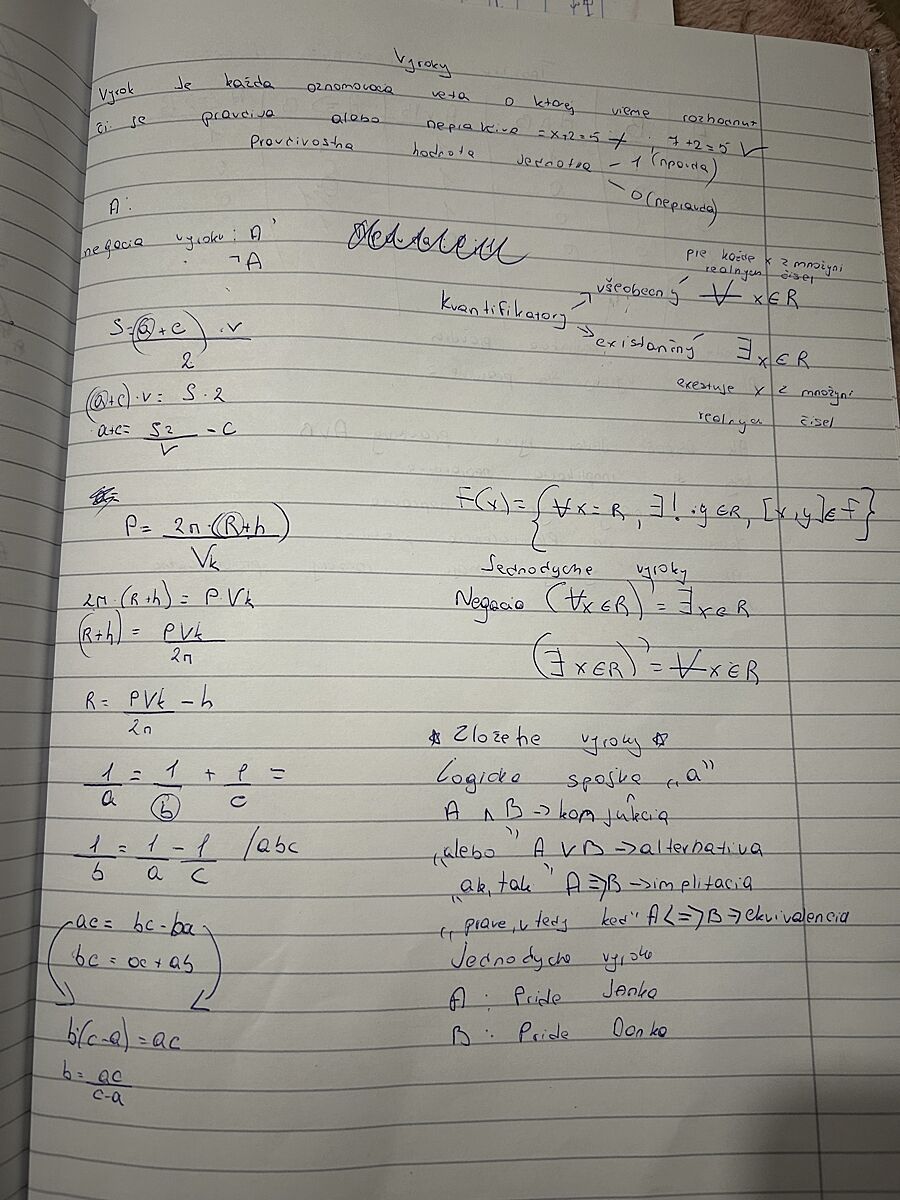 Vyroky
Vyrok je každa oznamovaca veta o ktorej vieme rozhodnut
či je pravdiva alebo nepravdiva = x+2=5 ; 7+2=5 √
Pravdivostna hodnota jednotka – 1 (pravda)
0 (nepravda)
A:
negacia vyroku: A'
¬A
kvantifikatory
všeobecny ∀ x∈R
pre každe x z množyni
realnych čisel
existančny ∃ x∈R
existuje x z množyni
realnych čisel
S = (a+c) · v / 2
(a+c)·v = S·2
a+c = S2 / v – c
P = 2π·(R+h) / Vk
2π·(R+h) = P·Vk
(R+h) = PVk / 2π
R = PVk / 2π – h
1/a = 1/b + 1/c =
1/b = 1/a – 1/c /abc
ac = bc - ba
bc = ac + ab
b(c-a) = ac
b = ac / c-a
F(x) = {∀x=R, ∃!·y∈R, [x,y]∈f}
Jednoduche vyroky
Negacia (∀x∈R)' = ∃x∈R
(∃x∈R)' = ∀x∈R
☆ Zložene vyroky ☆
Logicka spojka „a"
A ∧ B → konjukcia
„alebo" A ∨ B → alternativa
„ak, tak" A => B → implitacia
„prave, vtedy ked" A <=> B → ekvivalencia
Jednoduche vyroke
A : Pride Janka
B : Pride Danka